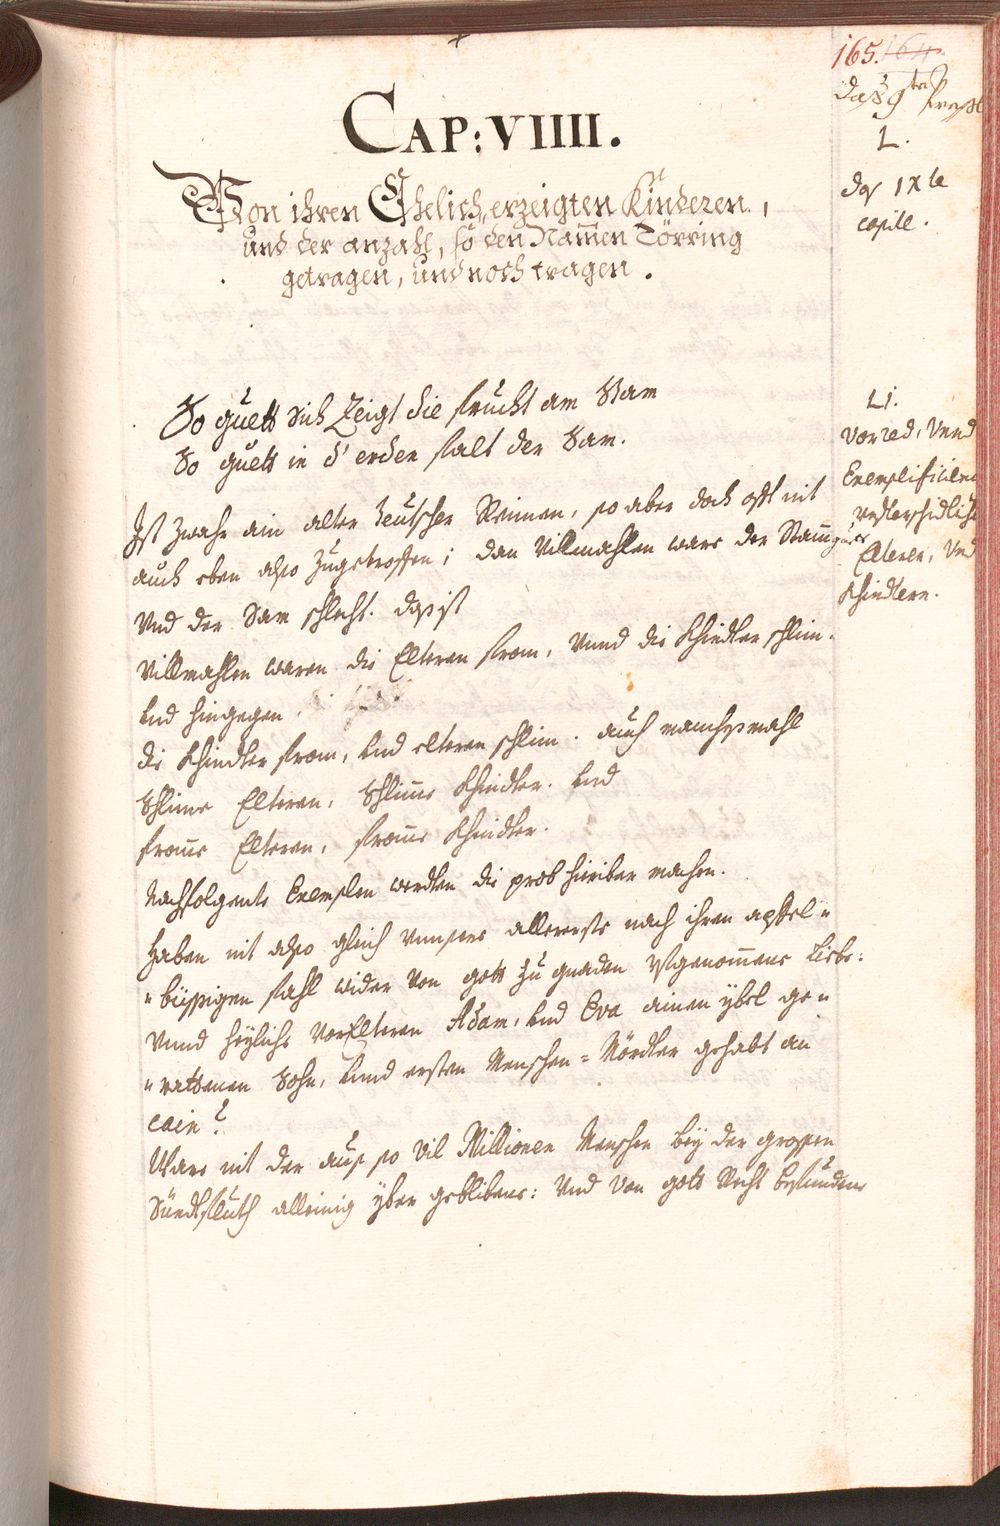 165. 164.
das 9te
L.
das IXte
capitel.
CAP: VIIII.
Von ihren Ehelich, erzeigten Kinderen,
und der anzahl, so den Nammen Törring
getragen, und noch tragen.
So guett sich Zeigt die frucht am Stam
So guett in d' erden falt der Sam.
LI.
Vorred, Vnnd
vnderschidliche
Elteren, Vnd
Khindern.
Ist zwahr ain alter Teutscher Reimen, so aber doch offt nit
auch eben also Zugetroffen; dan Villmahlen ware der Stam guet
Vnd der Sam schlecht. das ist
Villmahlen waren die Elteren from, Vnnd die Khindter schlim.
Und hingegen
die Khindter from, Und elteren schlim. auch manchsmahl
Schlime Elteren, Schlime Khindter. Und
frome Elteren, frome Khindter.
Nachfolgente Exemplen werdten die prob hieriber machen.
Haben nit also gleich Vnnsere allererste nach ihren apffel-
-bissigen fahl wider Von gott zu gnaden ufgenommene Liebe:
Vnnd heylige VorElteren Adam, Und Eva ainen ybel ge-
-rathenen Sohn, Und ersten Menschen-Mördter gehabt an
Cain?
Ware nit der auss so Vil Millionen Menschen bey der grossen
Sündtfluth alleinig yber geblibene: Und Von gott Recht befundene